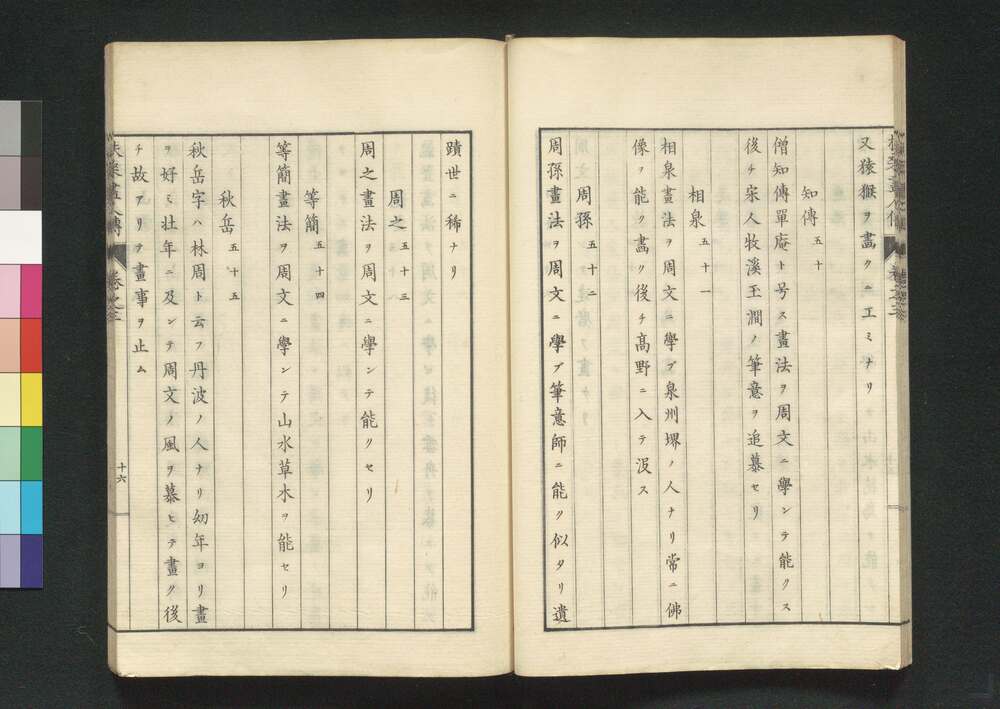 又猿猴ヲ畵クニ工ミナリ
知傳 五十
僧知傳單庵ト号ス畫法ヲ周文ニ學ンテ能クス
後チ宋人牧溪玉澗ノ筆意ヲ追慕セリ
相泉 五十一
相泉畫法ヲ周文ニ學ブ泉州堺ノ人ナリ常ニ佛
像ヲ能ク畵ク後チ髙野ニ入テ沒ス
周孫 五十二
周孫畫法ヲ周文ニ學ブ筆意師ニ能ク似タリ遺
蹟世ニ稀ナリ
周之 五十三
周之畫法ヲ周文ニ學ンテ能クセリ
等簡 五十四
等簡畫法ヲ周文ニ學ンテ山水草木ヲ能セリ
秋岳 五十五
秋岳字ハ林周ト云フ丹波ノ人ナリ幼年ヨリ畫
ヲ好ミ壮年ニ及ンテ周文ノ風ヲ慕ヒテ畫ク後
チ故アリテ畫事ヲ止ム
十六